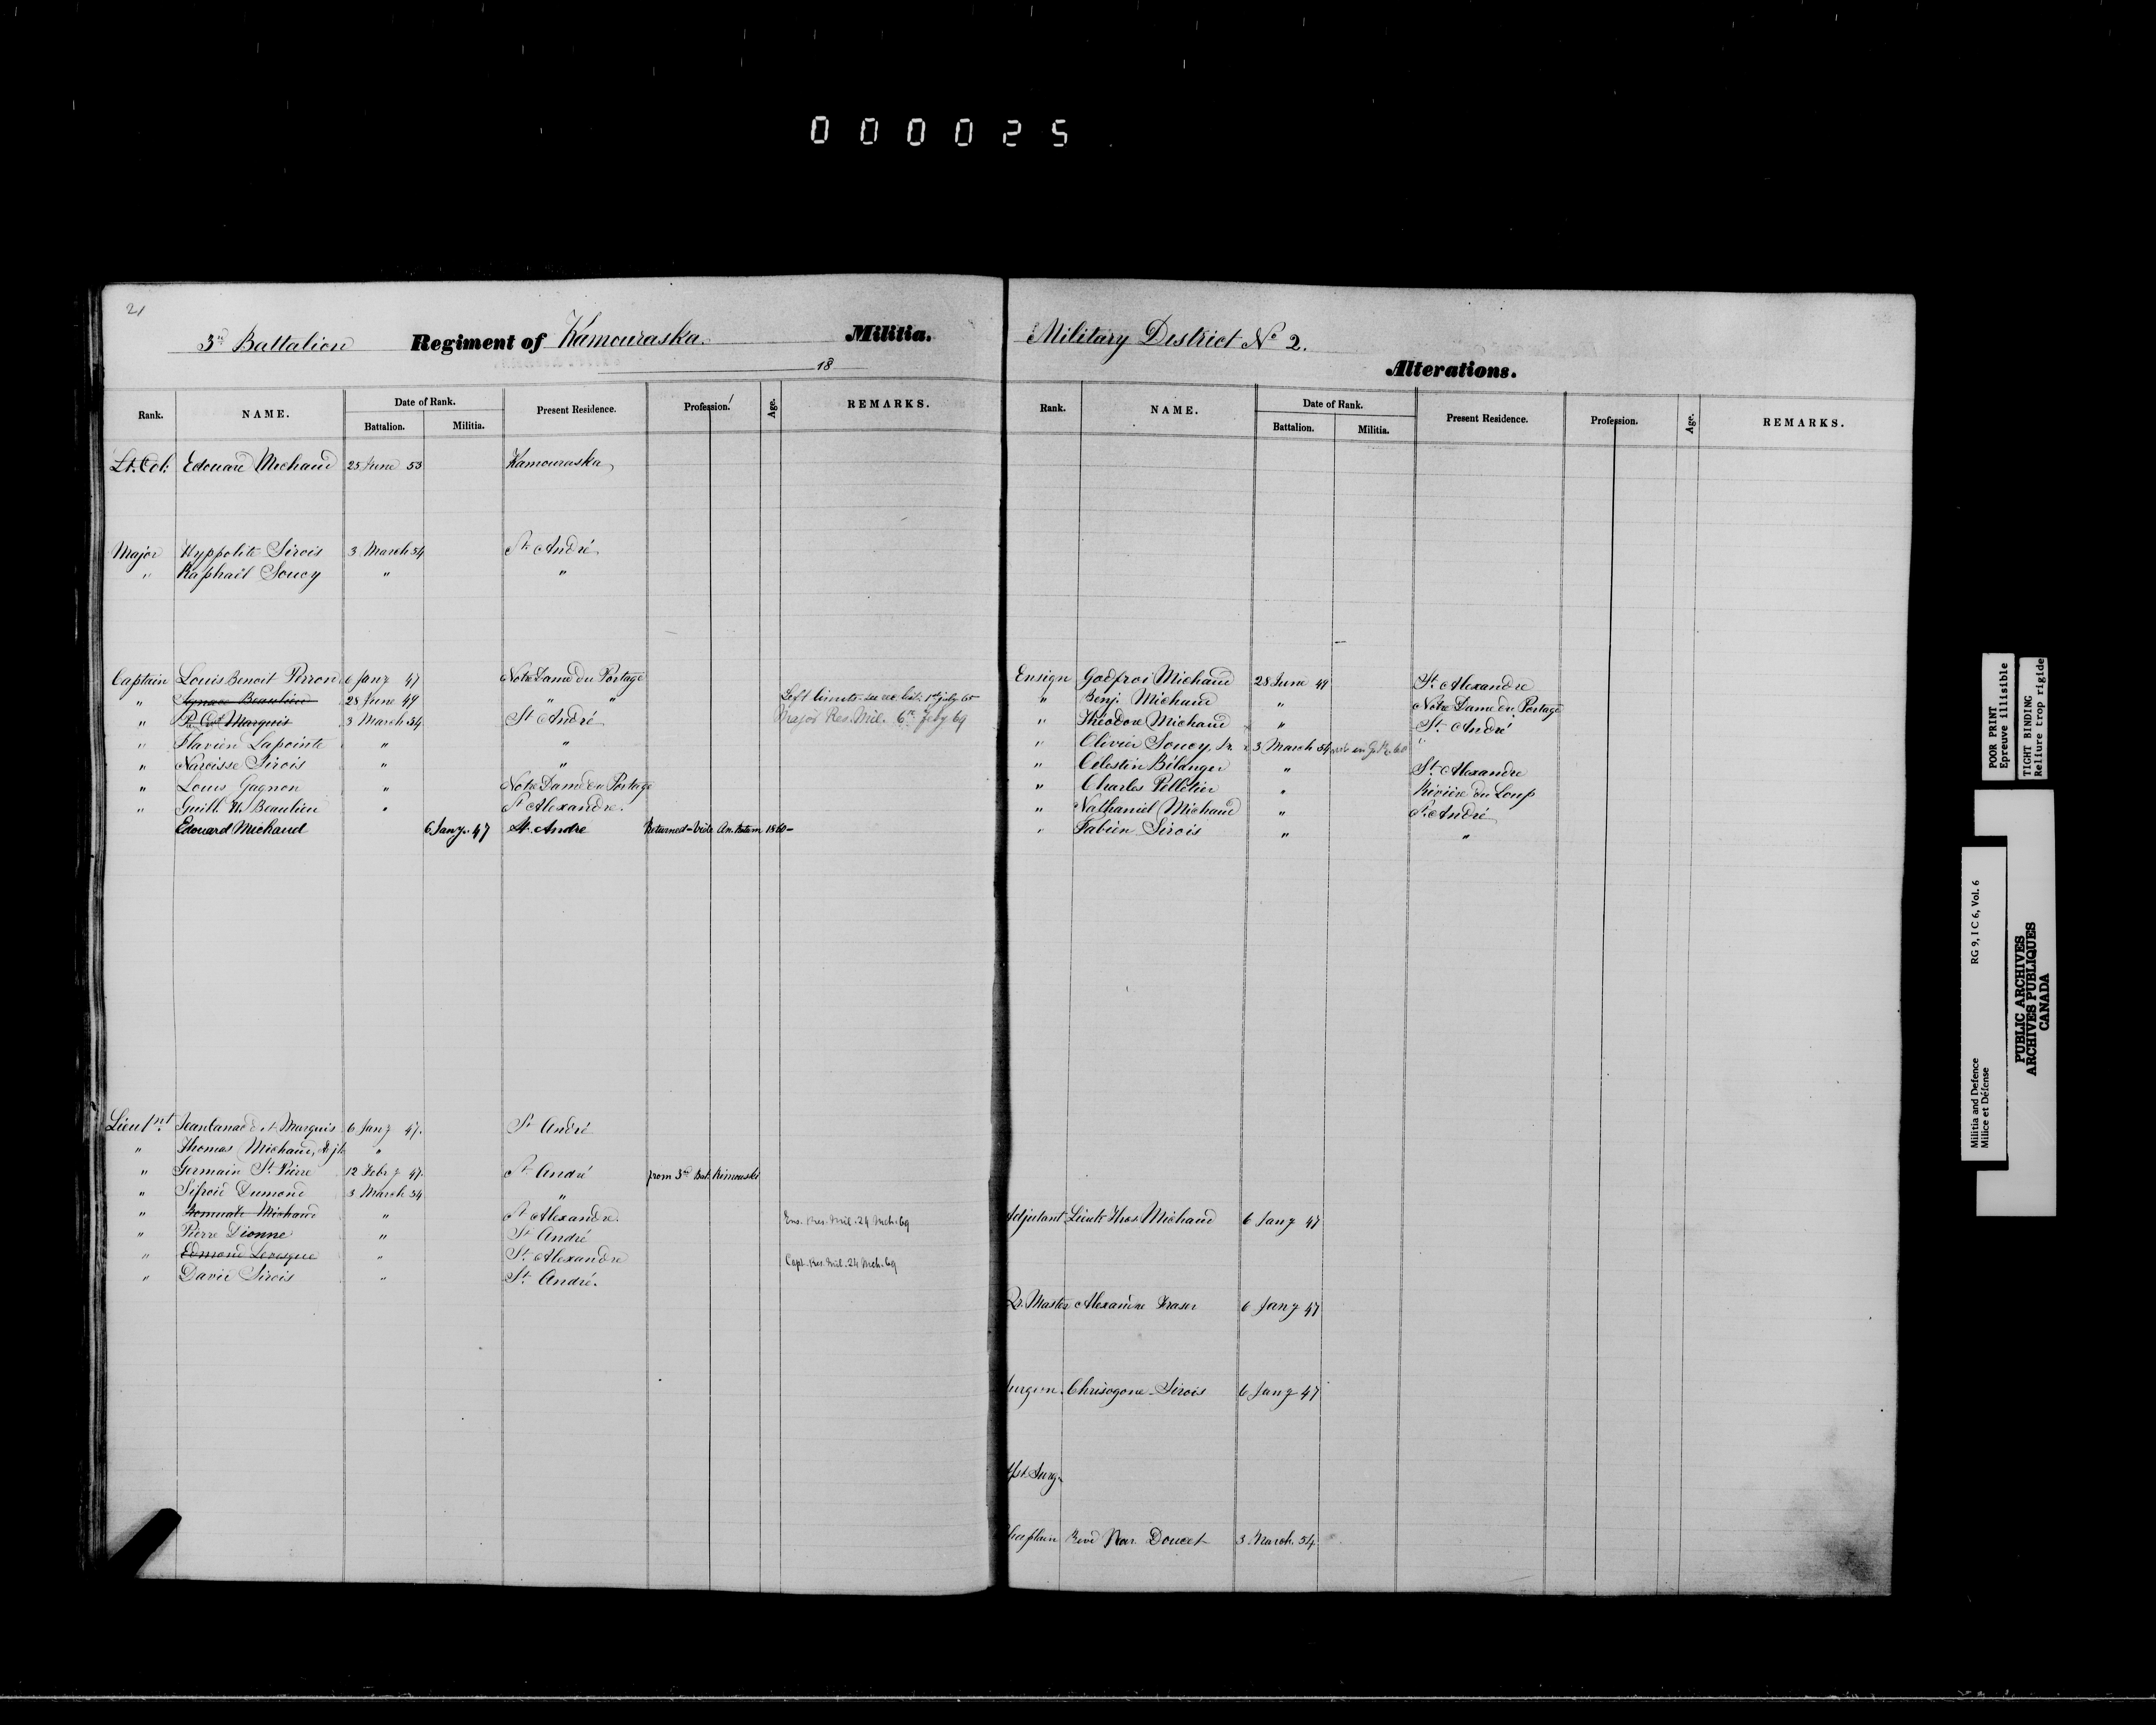 000025
21
3rd Battalion Regiment of Kamouraska. Militia.
18
Rank. NAME. Date of Rank. Present Residence. Profession. Age. REMARKS.
Battalion. Militia.
Lt. Col. Edouard Michaud 25 June 53 Kamouraska
Major Hyppolite Sirois 3 March 54 St. André
" Raphaël Soucy " "
Captain Louis Benoit Perron 6 Jany 47 Notre Dame du Portage
" Ignace Beaulieu 28 June 49 " " Left limits 1st July 60
" Marquis 3 March 54 St André Major Res. Mil. 6th 69
" Flavien Lapointe " "
" Narcisse Sirois " "
" Louis Gagnon " Notre Dame du Portage
" Guill. H. Beaulieu " St Alexandre.
Edouard Michaud 6 Jany. 47 St. Andre Returned - Vide An. Return 1860 -
Lieutnt Marquis 6 Jany 47. St André
" Thomas Michaud, Adjt "
" Germain St. Pierre 12 Feby 47. St André from 3rd Bat. Rimouski
" Sifroid Dumond 3 March 54 "
" Romuald Michaud " St Alexandre. Ens. Res. Mil. 24 Mch. 69
" Pierre Dionne " St André
" Edmond Levesque " St. Alexandre Capt. Res. Mil. 24 Mch. 69
" David Sirois " St. André.
Military District No 2.
Alterations.
Rank. NAME. Date of Rank. Present Residence. Profession. Age. REMARKS.
Battalion. Militia.
Ensign Godfroi Michaud 28 June 49 St. Alexandre
" Benj. Michaud " Notre Dame du Portage
" Théodore Michaud " St. André
" Olivier Soucy, Jr. 3 March 54 "
" Célestin Bélanger " St. Alexandre
" Charles Pelletier " Rivière du Loup
" Nathaniel Michaud " St. André
" Fabien Sirois " "
Adjutant Lieut. Thos. Michaud 6 Jany 47
Qr. Master Alexandre Fraser 6 Jany 47
Surgeon. Chrisogone Sirois 6 Jany 47
Asst. Surg.
Chaplain Revd Nar. Doucet 3 March 54
POOR PRINT
Epreuve illisible
TIGHT BINDING
Reliure trop rigide
Militia and Defence RG 9, I C 6, Vol. 6
Milice et Défense
PUBLIC ARCHIVES
ARCHIVES PUBLIQUES
CANADA